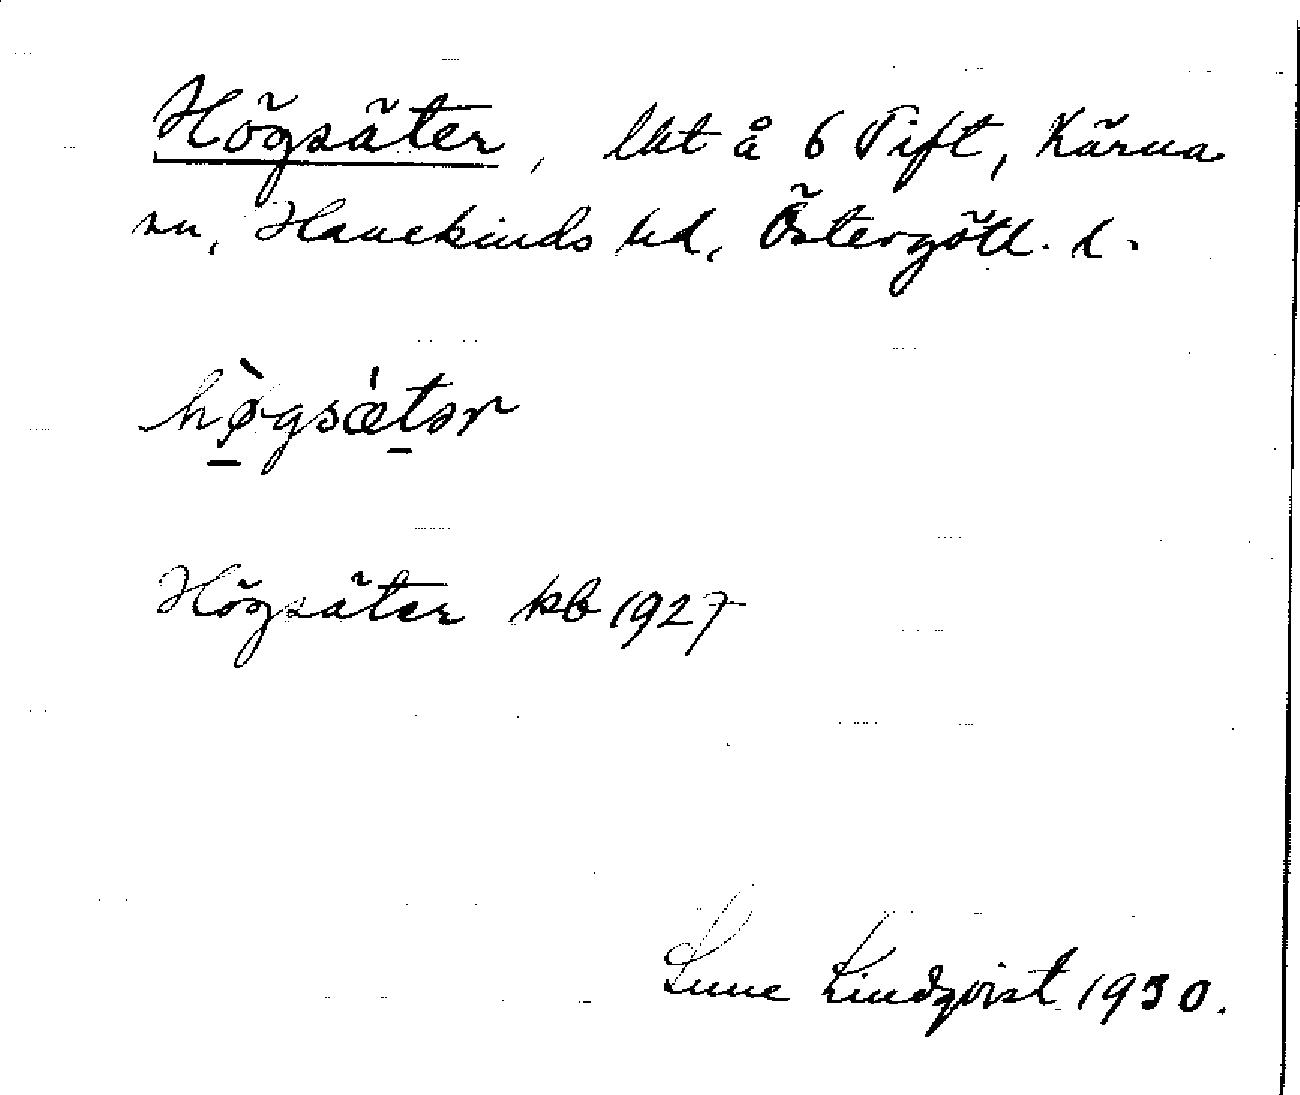 Högsäter, lht å 6 Tift, Kärna
sn, Hanekinds hd, Östergötl. l.
hø̀gsæ̍tər
Högsäter kb 1927
Sune Lindqvist 1930.